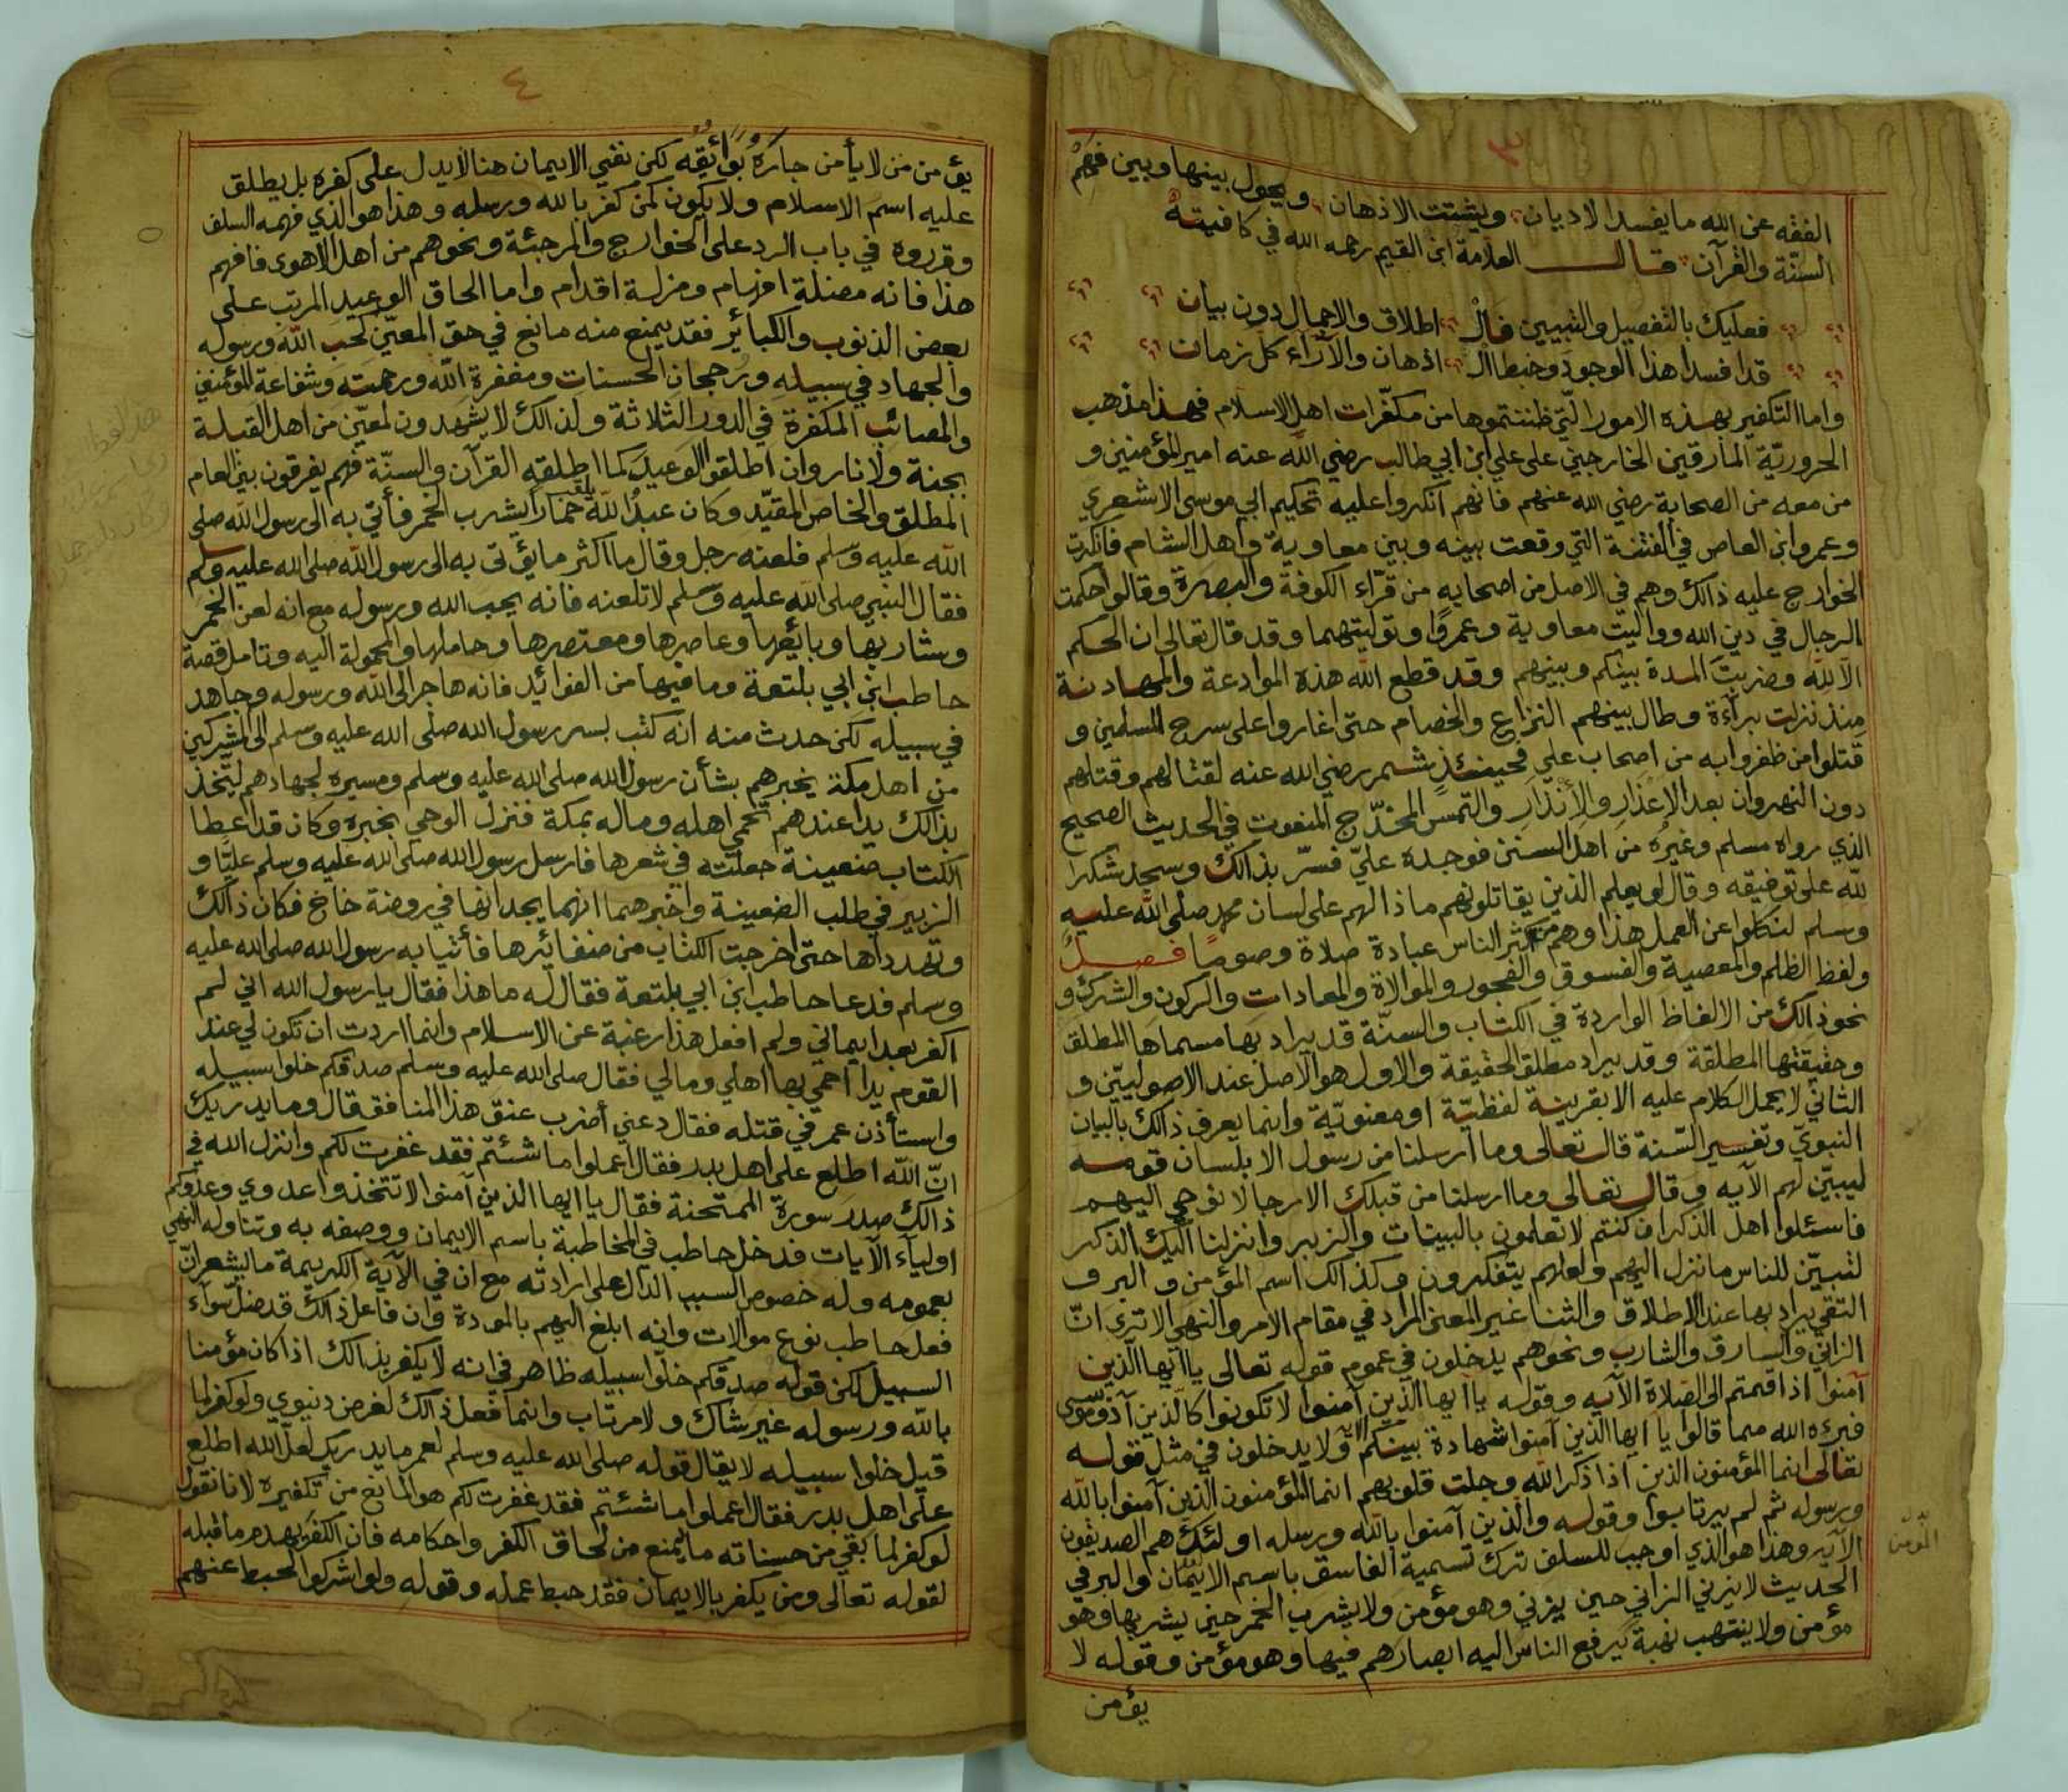 ٣
ويحول بينها وبين فهم
الفقه عن الله ما يفسد الاديان ويشتت الاذهان
السنّة والقرآن قال العلامة ابن القيم رحمه الله في كافيته
فعليك بالتفصيل والتبيين فالْـ اطلاق والاجمال دون بيان
قد افسدا هذا الوجود وخبطا الـ اذهان والآراء كل زمان
واما التكفير بهذه الامور الّتي ظننتموها من مكفّرات اهل الاسلام فهذا مذهب
الحروريّة المارقين الخارجين على علي ابن ابي طالب رضي الله عنه امير المؤمنين و
من معه من الصحابة رضي الله عنهم فانهم انكروا عليه تحكيم ابي موسى الاشعري
وعمرو ابن العاص في الفتنة التي وقعت بينه وبين معاوية واهل الشام فانكرت
الخوارج عليه ذالك وهم في الاصل من اصحابه من قرّاء الكوفة والبصرة وقالوا حكمت
الرجال في دين الله وواليت معاوية وعمرًوا وتوليتهما وقد قال تعالى ان الحكم
الا لله وضربت المدة بينكم وبينهم وقد قطع الله هذه الموادعة والمهادنة
منذ نزلت برآءة وطال بينهم النزاع والخصام حتى اغاروا على سرح المسلمين و
قتلوا من ظفروا به من اصحاب علي فحينئذٍ شمر رضي الله عنه لقتالهم وقتلهم
دون النهروان بعد الاعذار والأنذار والتمس المخدّج المنعوت في الحديث الصحيح
الذي رواه مسلم وغيره من اهل السنن فوجده عليّ فسرّ بذالك وسجد شكرا
لله على توفيقه وقال لو يعلم الذين يقاتلونهم ماذا لهم على لسان محمد صلى الله عليه
وسلم لنكلوا عن العمل هذا وهم من اكثر الناس عبادة صلاة وصومًا فصل
ولفظ الظلم والمعصية والفسوق والفجور والموالاة والمعادات والركون والشرك و
نحو ذالك من الالفاظ الواردة في الكتاب والسنّة قد يراد بها مسماها المطلق
وحقيقتها المطلقة وقد يراد مطلق الحقيقة والاول هو الاصل عند الاصوليّين و
الثاني لا يحمل الكلام عليه الا بقرينة لفظيّة او معنويّة وانما يعرف ذالك بالبيان
النبويّ وتفسير السّنة قال تعالى وما ارسلنا من رسول الا بلسان قومه
ليبيّن لهم الآيه وقال تعالى وما ارسلنا من قبلك الا رجالا نوحي اليهم
فاسئلوا اهل الذكر ان كنتم لا تعلمون بالبينات والزبر وانزلنا اليك الذكر
لتبيّن للناس ما نزل اليهم ولعلهم يتفكرون وكذالك اسم المؤمن و البر و
التقي يراد بها عند الاطلاق والثنا غير المعنى المراد في مقام الامر والنهي الا ترى انّ
الزاني والسارق والشارب ونحوهم يدخلون في عموم قوله تعالى يا ايها الّذين
آمنوا اذا قمتم الى الصّلاة الآيه وقوله يا ايها الذين آمنوا لا تكونوا كالّذين آذوا موسى
فبرءه الله مما قالوا يا ايها الذين آمنوا شهادة بينكم الآية ولا يدخلون في مثل قوله
تعالى انما المؤمنون الذين اذا ذكر الله وجلت قلوبهم انما المؤمنون الّذين آمنوا بالله
ورسوله ثم لم يرتابوا وقوله والّذين آمنوا بالله ورسله اولئك هم الصديقون
الآيه وهذا هو الذي اوجب للسلف ترك تسمية الفاسق باسم الايمان والبر في
الحديث لا يزني الزاني حين يزني وهو مؤمن ولا يشرب الخمر حين يشربها وهو
مؤمن ولا ينتهب نهبة يرفع الناس اليه ابصارهم فيها وهو مؤمن وقوله لا
يؤمن
المؤمن
٤
يؤمن من لا يأمن جاره بوائقه لكن نفي الايمان هنا لا يدل على كفره بل يطلق
عليه اسم الاسلام ولا يكون كمن كفر بالله ورسله وهذا هو الذي فهمه السلف
وقرروه في باب الرد على الخوارج والمرجئة ونحوهم من اهل الاهوى فافهم
هذا فانه مضلة افهام ومزلة اقدام واما الحاق الوعيد المرتب على
بعض الذنوب والكبائر فقد يمنع منه مانع في حق المعيّن كحب الله ورسوله
والجهاد في سبيله ورجحان الحسنات ومغفرة الله ورحمته وشفاعة المؤمنين
والمصائب المكفرة في الدور الثلاثة ولذالك لا يشهدون لمعيّن من اهل القبلة
بجنة ولا نار وان اطلقوا الوعيد كما اطلقه القرآن والسنّة فهم يفرقون بين العام
المطلق والخاص المقيّد وكان عبد الله حمار يشرب الخمر فأتي به الى رسول الله صلى
الله عليه وسلم فلعنه رجل وقال ما اكثر ما يؤتى به الى رسول الله صلى الله عليه وسلم
فقال النبي صلى الله عليه وسلم لا تلعنه فانه يحب الله ورسوله مع انه لعن الخمر
وشاربها وبائعها وعاصرها ومعتصرها وحاملها والمحمولة اليه وتامل قصة
حاطب ابن ابي بلتعة وما فيها من الفوائد فانه هاجر الى الله ورسوله وجاهد
في سبيله لكن حدث منه انه كتب بسر رسول الله صلى الله عليه وسلم الى المشركين
من اهل مكة يخبرهم بشأن رسول الله صلى الله عليه وسلم ومسيره لجهادهم ليتخذ
بذالك يدا عندهم تحمي اهله وماله بمكة فنزل الوحي بخبره وكان قد اعطا
الكتاب ضعينة جعلته في شعرها فارسل رسول الله صلى الله عليه وسلم عليًّا و
الزبير في طلب الضعينة واخبرهما انهما يجدانها في روضة خاخ فكان ذالك
وتهدداها حتى اخرجت الكتاب من ضفائرها فأتيا به رسول الله صلى الله عليه
وسلم فدعا حاطب ابن ابي بلتعة فقال له ما هذا فقال يا رسول الله اني لم
اكفر بعد ايماني ولم افعل هذا رغبة عن الاسلام وانما اردت ان تكون لي عند
القوم يدا احمي بها اهلي ومالي فقال صلى الله عليه وسلم صدقكم خلوا سبيله
واستأذن عمر في قتله فقال دعني أضرب عنق هذا المنافق قال وما يدريك
انّ الله اطلع على اهل بدر فقال اعملوا ما شئتم فقد غفرت لكم وانزل الله في
ذالك صدر سورة الممتحنة فقال يا ايها الذين آمنوا لا تتخذوا عدوي وعدوكم
اولياء الآيات فدخل حاطب في المخاطبة باسم الايمان ووصفه به وتناوله النهي
بعمومه وله خصوص السبب الدال على ارادته مع ان في الآية الكريمة ما يشعر انّ
فعل حاطب نوع موالات وانه ابلغ اليهم بالمودة وان فاعل ذالك قد ضل سواء
السبيل لكن قوله صدقكم خلّوا سبيله ظاهر في انه لا يكفر بذالك اذا كان مؤمنا
بالله ورسوله غير شاك ولا مرتاب وانما فعل ذالك لغرض دنيوي ولو كفر لما
قيل خلوا سبيله لا يقال قوله صلى الله عليه وسلم لعمر ما يدريك لعلّ الله اطلع
على اهل بدر فقال اعملوا ما شئتم فقد غفرت لكم هو المانع من تكفيره لانا نقول
لو كفر لما بقي من حسناته ما يمنع من لحاق الكفر واحكامه فان الكفر يهدم ما قبله
لقوله تعالى ومن يكفر بالايمان فقد حبط عمله وقوله ولو اشركوا لحبط عنهم